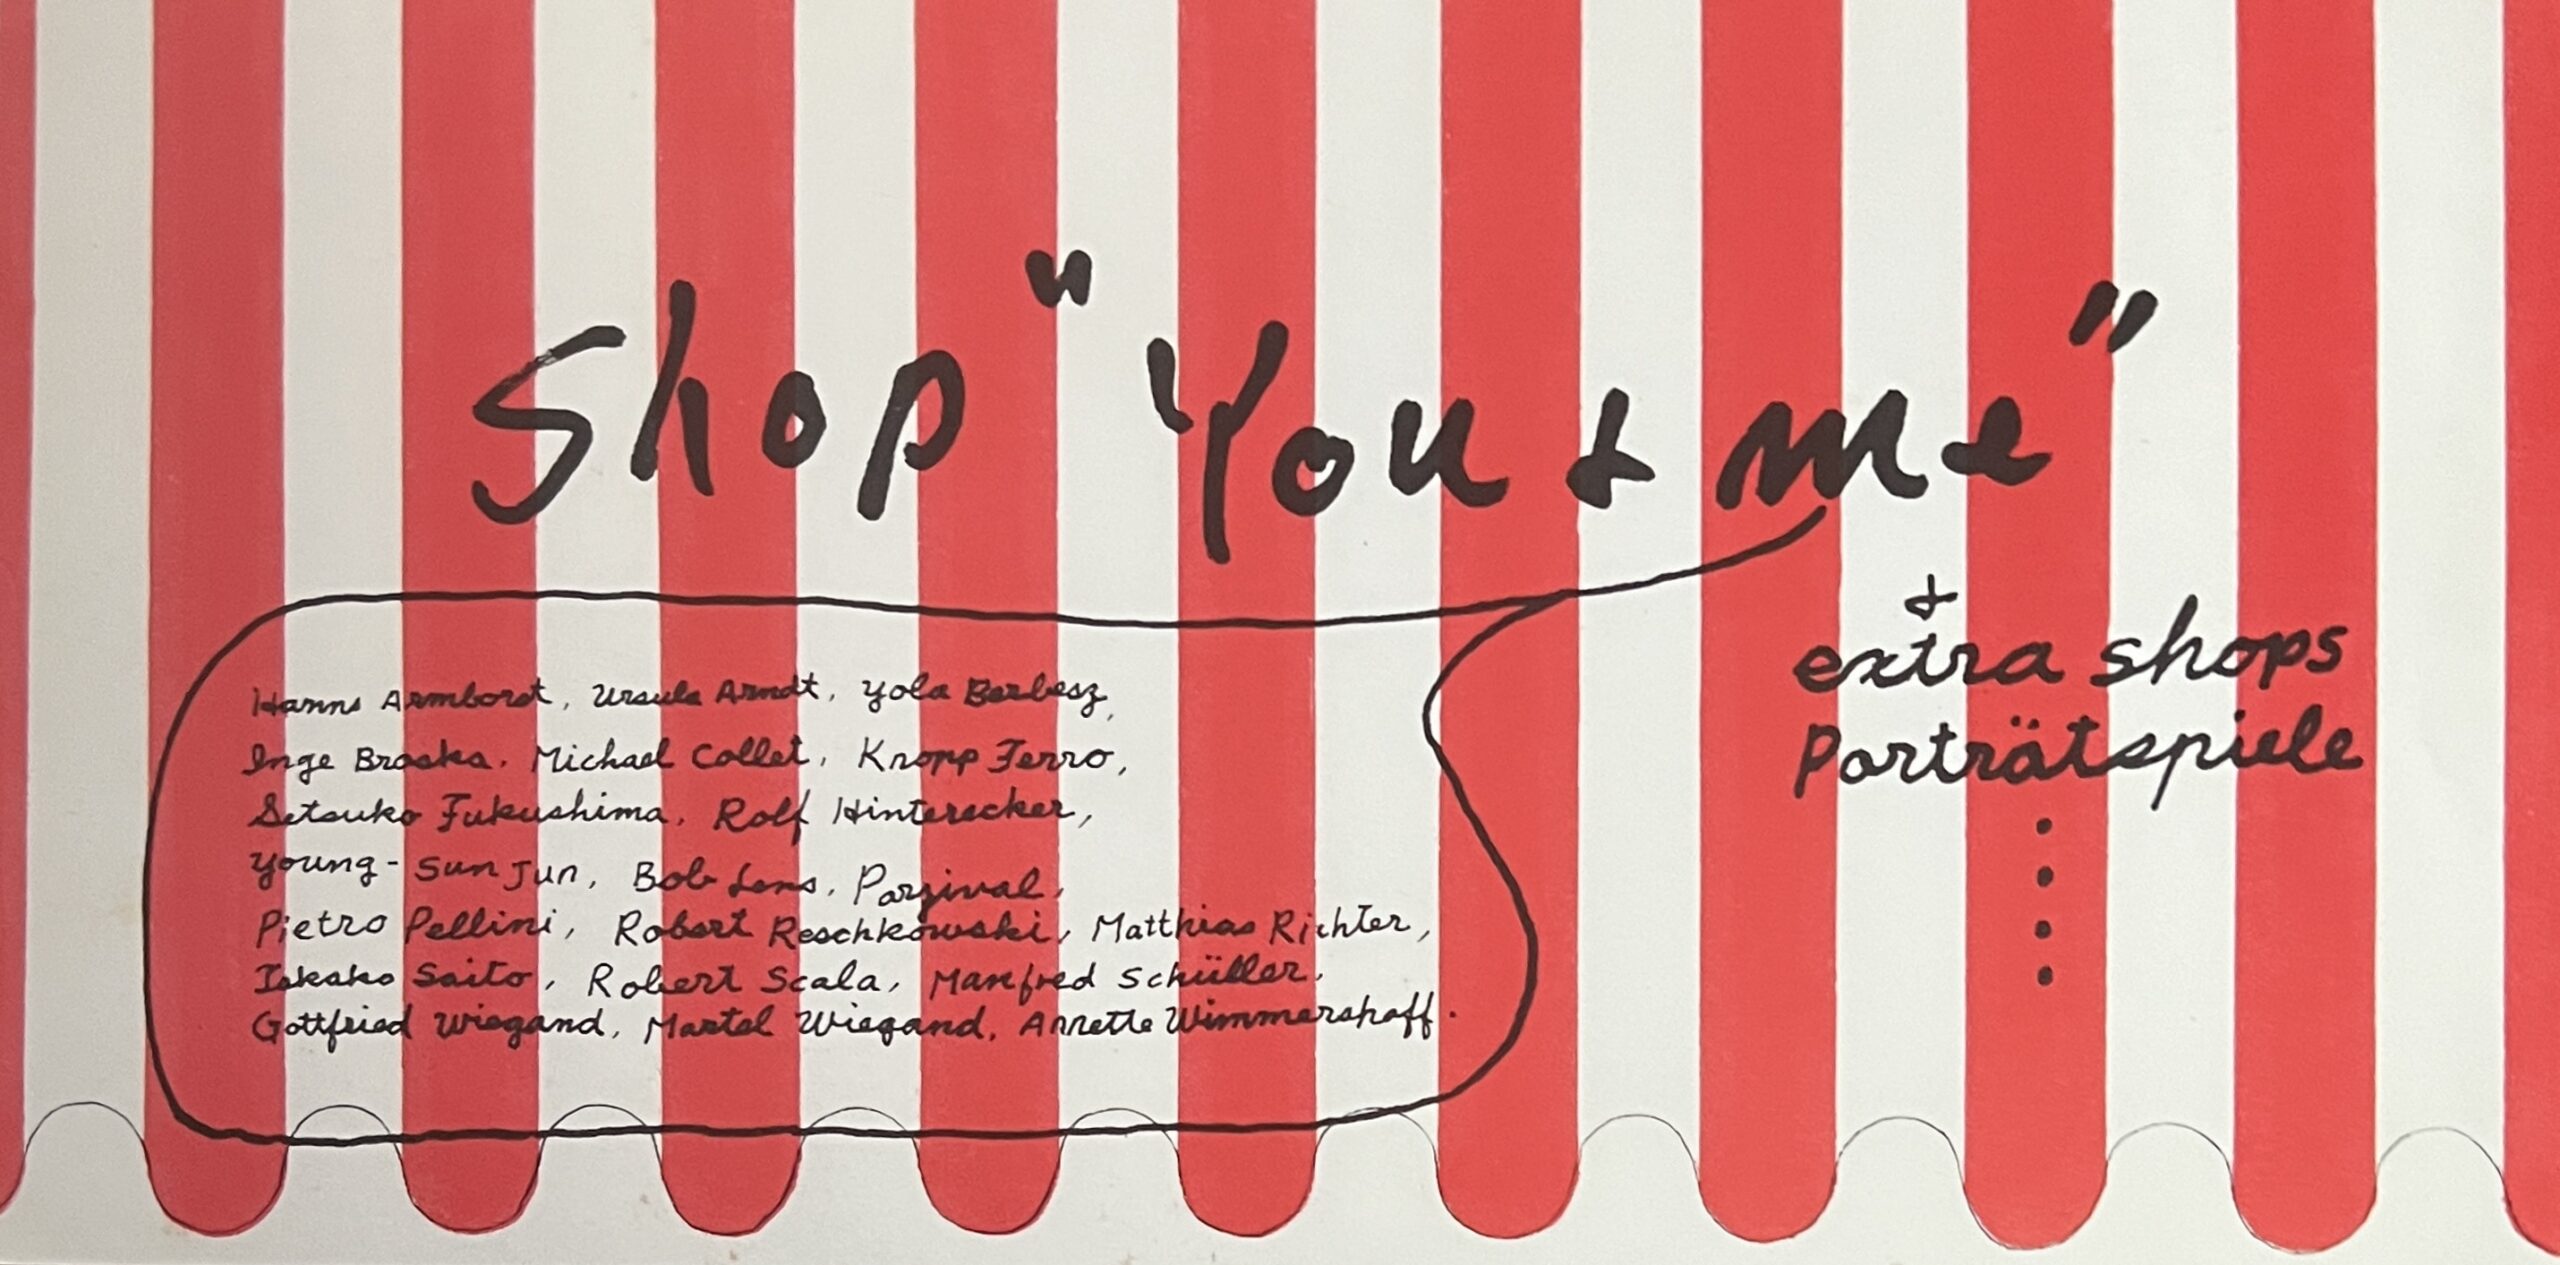 Shop "You & me"
Hanns Armborst, Ursula Arndt, Yola Berbesz,
Inge Broska, Michael Collet, Knopp Ferro,
Setsuko Fukushima, Rolf Hinterecker,
Young-Sun Jun, Bob Lens, Parzival,
Pietro Pellini, Robert Reschkowski, Matthias Richter,
Takako Saito, Robert Scala, Manfred Schüller,
Gottfried Wiegand, Martel Wiegand, Annette Wimmershoff.
&
extra shops
Porträtspiele